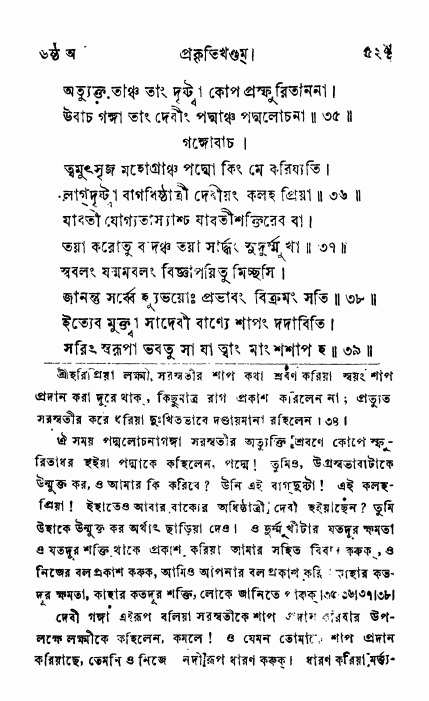 ৬ষ্ঠ অ প্রকৃতিখণ্ডম্।
অত্যুক্ত তাঞ্চ তাং দৃষ্ট্বা কোপ প্রস্ফুরিতাননা।
উবাচ গঙ্গা তাং দেবীং পদ্মাঞ্চ পদ্মলোচনা॥ ৩৫॥
গঙ্গোবাচ।
ত্বমুৎসৃজ মহোগ্রাঞ্চ পদ্মে কিং মে করিষ্যতি।
বাগধিষ্ঠাত্রী দেবীয়ং কলহ প্রিয়া॥ ৩৬॥
যাবতী যোগ্যতাস্যাশ্চ যাবতীশক্তিরেব বা।
তয়া করোতু বাদঞ্চ তয়া সার্দ্ধং সুদুর্ম্মুখা॥ ৩৭॥
স্ববলং যন্মমবলং বিজ্ঞাপয়িতু মিচ্ছসি।
জানন্তু সর্ব্বে হ্যুভয়োঃ প্রভাবং বিক্রমং সতি॥ ৩৮॥
ইত্যেব মুক্ত্বা সাদেবী বাণ্যৈ শাপং দদাবিতি।
সরিৎ স্বরূপা ভবতু সা যা ত্বাং মাং শশাপ হ॥ ৩৯॥
শ্রীহরিপ্রিয়া লক্ষ্মী, সরস্বতীর শাপ কথা শ্রবণ করিয়া স্বয়ং শাপ
প্রদান করা দূরে থাক, কিছুমাত্র রাগ প্রকাশ করিলেন না; প্রত্যুত
সরস্বতীর করে ধরিয়া দুঃখিতভাবে দণ্ডায়মানা রহিলেন।৩৪।
ঐ সময় পদ্মলোচনাগঙ্গা সরস্বতীর অত্যুক্তি শ্রবণে কোপে স্ফু-
রিতাধর হইয়া পদ্মাকে কহিলেন, পদ্মে! তুমিও, উগ্রস্বভাবাটাকে
উন্মুক্ত কর, ও আমার কি করিবে? উনি এই বাগ্‌দুষ্টা! এই কলহ-
প্রিয়া! ইহাতেও আবার বাক্যের অধিষ্ঠাত্রী দেবী হইয়াছেন? তুমি
উহাকে উন্মুক্ত কর অর্থাৎ ছাড়িয়া দেও। ও দুর্ম্মুখীটার যতদূর ক্ষমতা
ও যতদূর শক্তি থাকে প্রকাশ করিয়া আমার সহিত বিবাদ করুক, ও
নিজের বল প্রকাশ করুক, আমিও আপনার বল প্রকাশ করি কাহার কত-
দূর ক্ষমতা, কাহার কতদূর শক্তি, লোকে জানিতে পারুক।৩৫।৩৬।৩৭।৩৮।
দেবী গঙ্গা এইরূপ বলিয়া সরস্বতীকে শাপ প্রদান করিবার উপ-
লক্ষে লক্ষ্মীকে কহিলেন, কমলে! ও যেমন তোমাকে শাপ প্রদান
করিয়াছে, তেমনি ও নিজে নদীরূপ ধারণ করুক। ধারণ করিয়া মর্ত্ত্য-